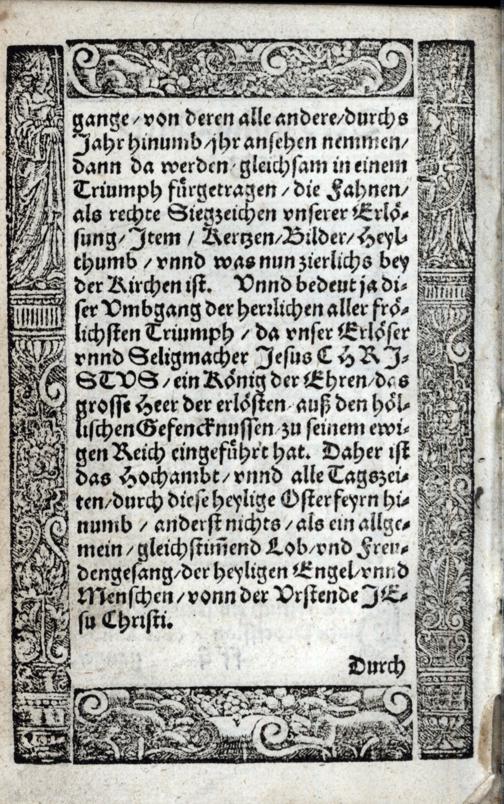 gange / von deren alle andere / durchs
Jahr hinumb / jhr ansehen nemmen /
dann da werden / gleichsam in einem
Triumph fürgetragen / die Fahnen /
als rechte Siegzeichen vnserer Erlö⸗
sung / Jtem / Kertzen / Bilder / Heyl⸗
thumb / vnnd was nun zierlichs bey
der Kirchen ist. Vnnd bedeut ja di⸗
ser Vmbgang der herrlichen aller frö⸗
lichsten Triumph / da vnser Erlöser
vnnd Seligmacher Jesus CHRJ⸗
STVS / ein König der Ehren / das
grosse Heer der erlösten / auß den höl⸗
lischen Gefencknussen / zu seinem ewi⸗
gen Reich eingeführt hat. Daher ist
das Hochambt / vnnd alle Tagszei⸗
ten / durch diese heylige Osterfeyrn hi⸗
numb / anderst nichts / als ein allge⸗
mein / gleichstim̃end Lob / vnd Freu⸗
dengesang / der heyligen Engel / vnnd
Menschen / vonn der Vrstende JE⸗
su Christi.
Durch